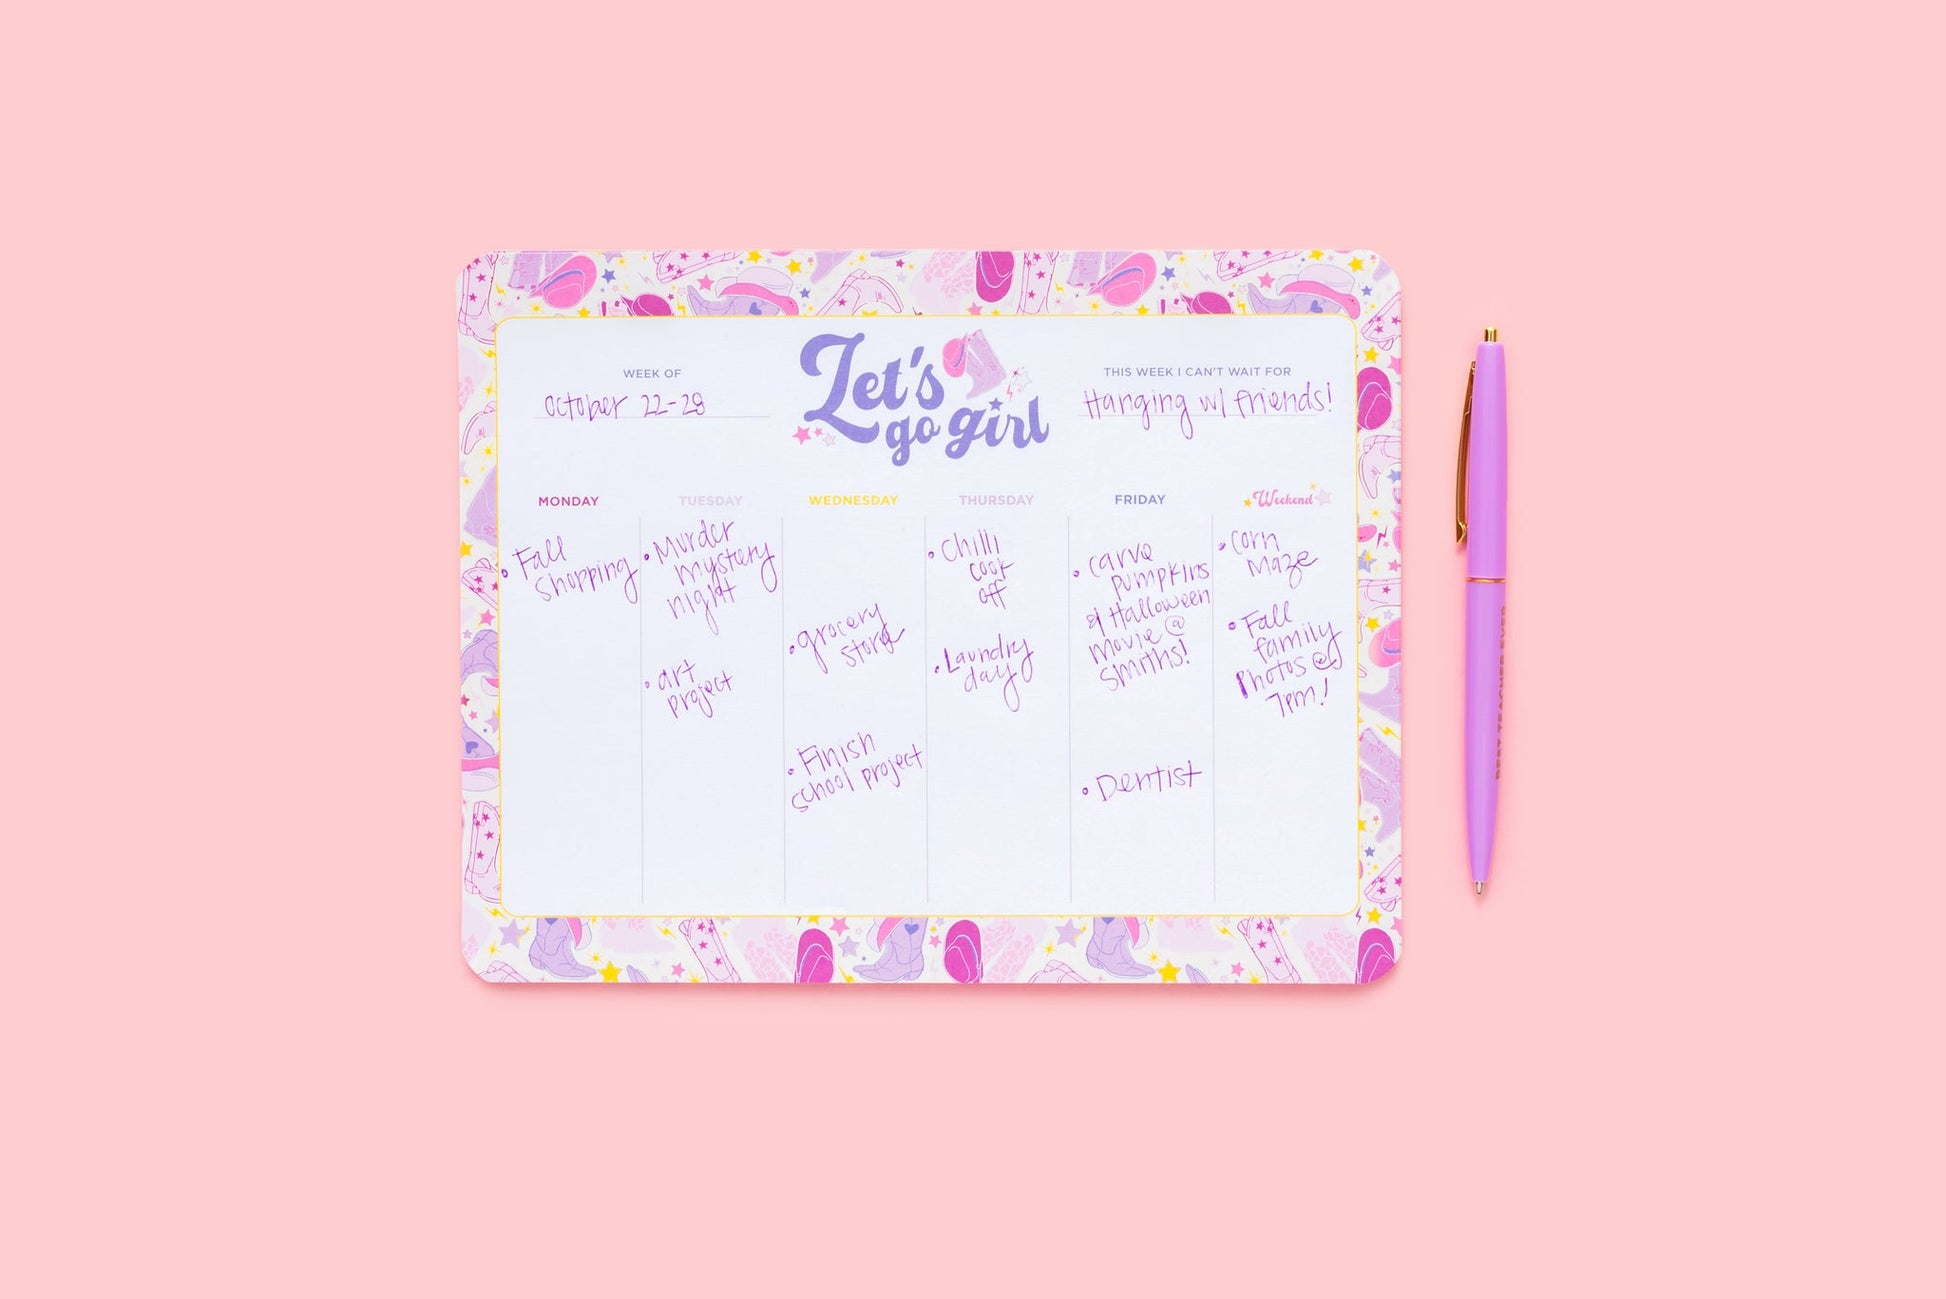 Let's
go girl
WEEK OF
October 22-28
THIS WEEK I CAN'T WAIT FOR
Hanging w/ friends!
MONDAY
• Fall
Shopping
TUESDAY
• Murder
mystery
night
• art
project
WEDNESDAY
• grocery
store
• Finish
school project
THURSDAY
• Chilli
cook
off
• Laundry
day
FRIDAY
• carve
pumpkins
& Halloween
movie @
Smiths!
• Dentist
Weekend
• corn
maze
• Fall
family
Photos @
7pm!
BEST TEACHER EVER